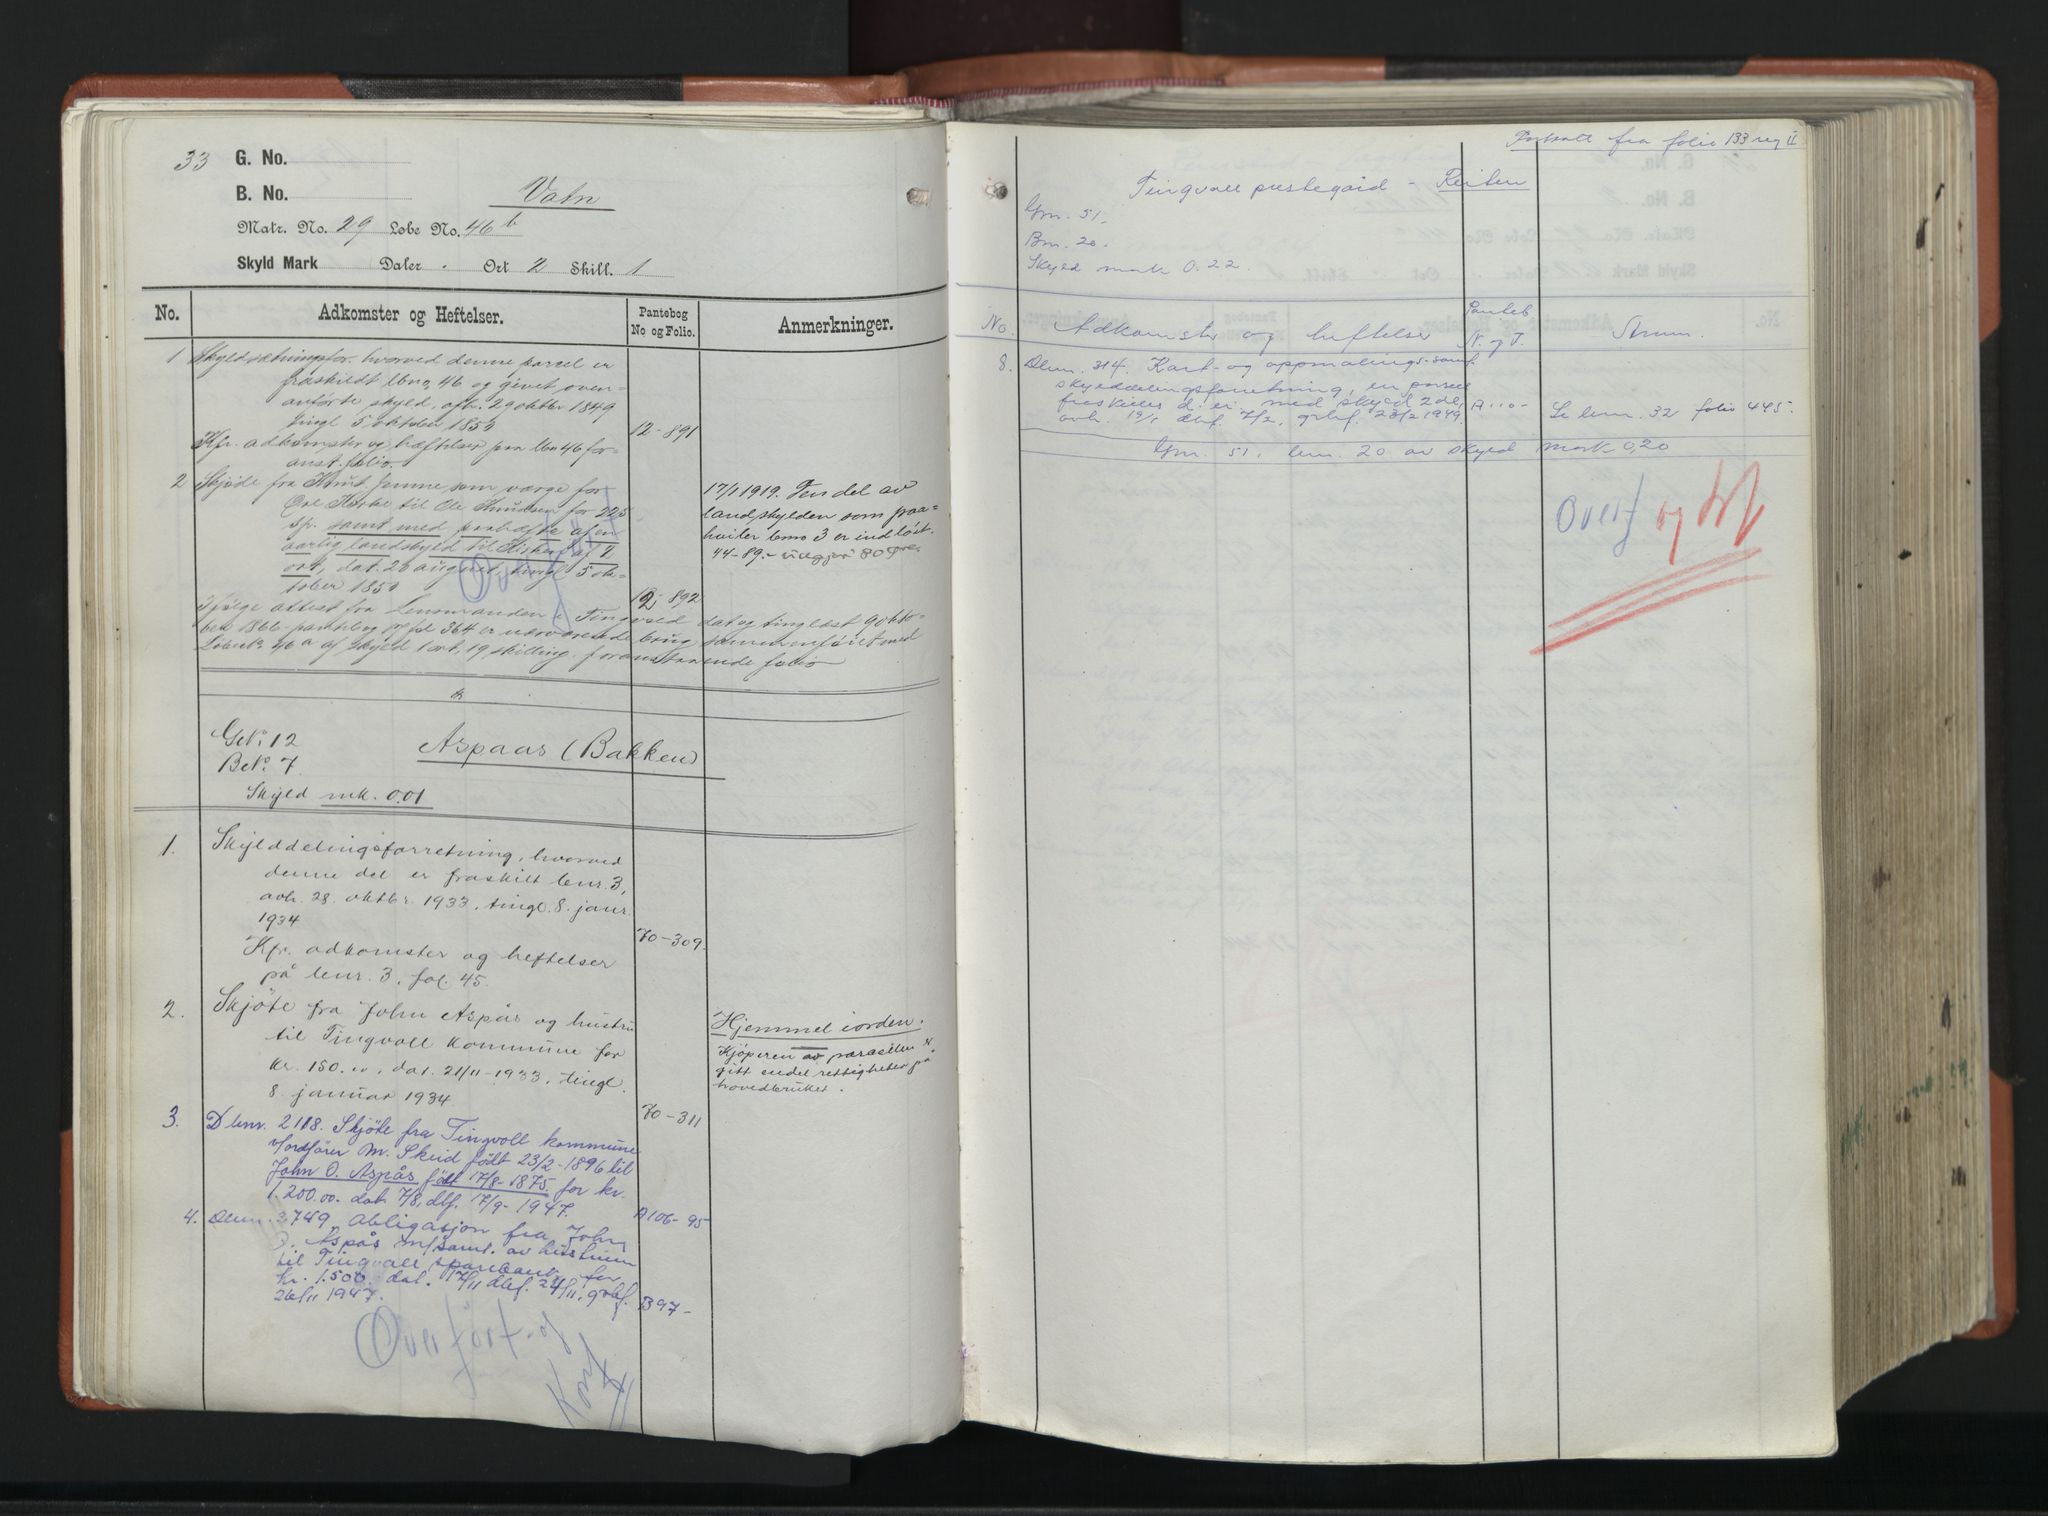 33
G. No.
B. No.
Vatn
Matr. No. 29 Løbe No. 46 b
Skyld Mark Daler - Ort 2 Skill. 1
No. Adkomster og Heftelser. Pantebog No og Folio. Anmerkninger.
1 Skyldsætningsfor. hvorved denne parcel er
fraskildt lbno 46 og givet oven-
anførte skyld, afh. 29 oktbr 1849
tingl 5 oktober 1850 12-891
Kfr. adkomster og hæftelser paa lbn 46 for-
anst. folio.
2 Skjøde fra Knut som værge for
til Ole Knudsen for 225
Sp. samt med paahæfte af en
aarlig landskyld til af 2
ort, dat. 20 august, tingl 5 ok-
tober 1850 12-892
17/1 1919. Den del av
landskylden som paa-
hviler bno 3 er indløst.
44-89.- 80 øre.
Ifølge attest fra Lensmanden i Tingvold dat og tinglæst 9 okto-
ber 1866 pantebog 17 fol 364 er nærværende brug sammenføiet med
Løbe No 46 a af skyld 1 ort, 19 skilling. foranstaaende folio
G No. 12
B No. 7
Aspaas (Bakken)
Skyld mk. 0.01
1. Skylddelingsforretning, hvorved
denne del er fraskilt bnr. 3,
avh. 28. oktbr. 1933, tingl. 8. janr.
1934 70-309.
Kfr. adkomster og heftelser
på bnr. 3, fol. 45.
2. Skjøte fra John Aspås og hustru
til Tingvoll kommune for
kr. 150.00, dat. 21/11-1933, tingl.
8. januar 1934 70-311
Hjemmel i orden.
Kjøperen av parsellen er
gitt endel rettigheter på
hovedbruket.
3. Dbnr. 2118. Skjøte fra Tingvoll kommune
v/ordfører M. Skeid født 23/2-1896 til
John O. Aspås født 17/8-1875 for kr.
1.200.00. dat. 7/8, dbf. 17/9-1947. A106-95
4. Dbnr. 3749 Obligasjon fra John
O. Aspås m/samt. av hustruen
til Tingvoll sparebank for
kr. 1.500. dat. 17/11 dbf. 24/11, grbf.
26/11 1947. B97-
Overført og
Konf
Fortsatt fra folio 133 reg II
Tingvoll prestegård - Reiten
Gnr. 51.
Bnr. 20.
Skyld mark 0.22.
No. Adkomster og heftelser Panteb N. og F. Anm.
8. Dbnr. 314. Kart- og oppmålings- samt
skylddelingsforretning, en parsell
fraskilles d. e. med skyld 2 øre,
avh. 19/1 dbf. 7/2, grbf. 23/2 1949. A110-
Se bnr. 32 folio 445.
Gnr. 51, bnr. 20 av skyld mark 0,20
Overf og